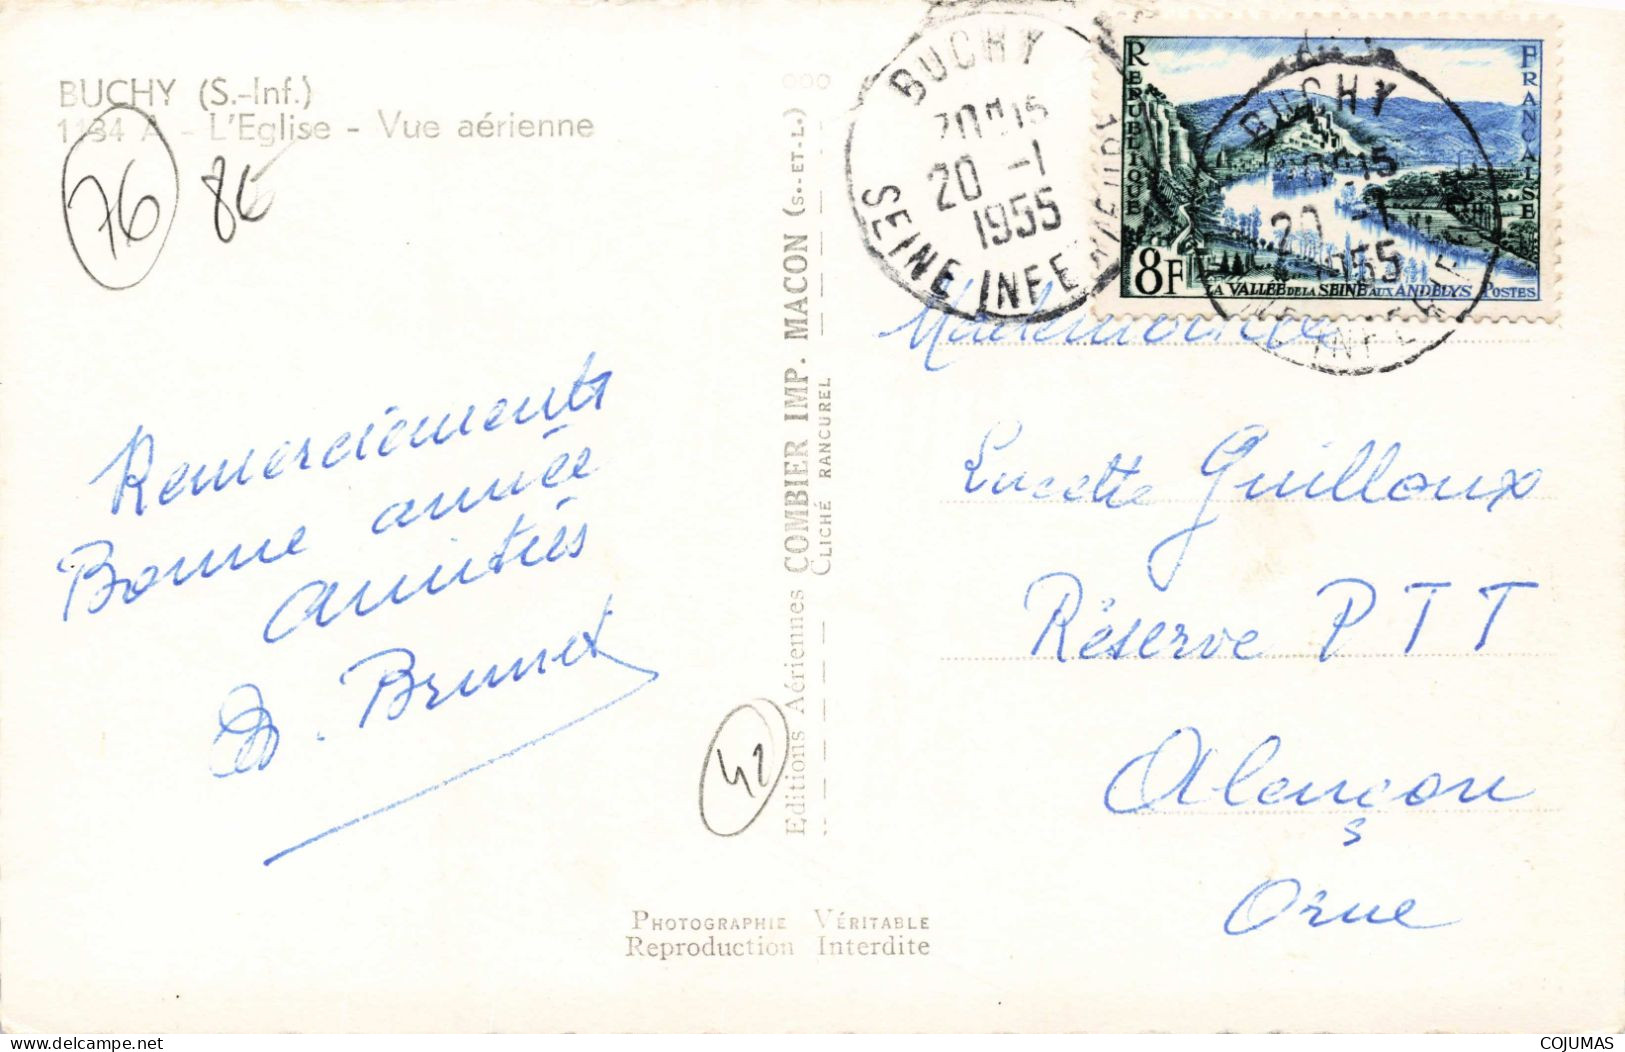 BUCHY (S.-Inf.)
1134 A - L'Eglise - Vue aérienne
76
86
Remerciements
Bonne année
amitiés
D. Brunet
42
Editions Aériennes COMBIER IMP. MACON (S.-ET-L.)
CLICHÉ RANCUREL
PHOTOGRAPHIE VÉRITABLE
Reproduction Interdite
BUCHY
20H15
20 -1
1955
SEINE INFERIEURE
REPUBLIQUE
FRANÇAISE
8F
LA VALLÉE DE LA SEINE AUX ANDELYS POSTES
BUCHY
20H15
20 -1
1955
SEINE INFERIEURE
Mademoiselle
Lucette Guilloux
Réserve PTT
Alençon
Orne
COJUMAS